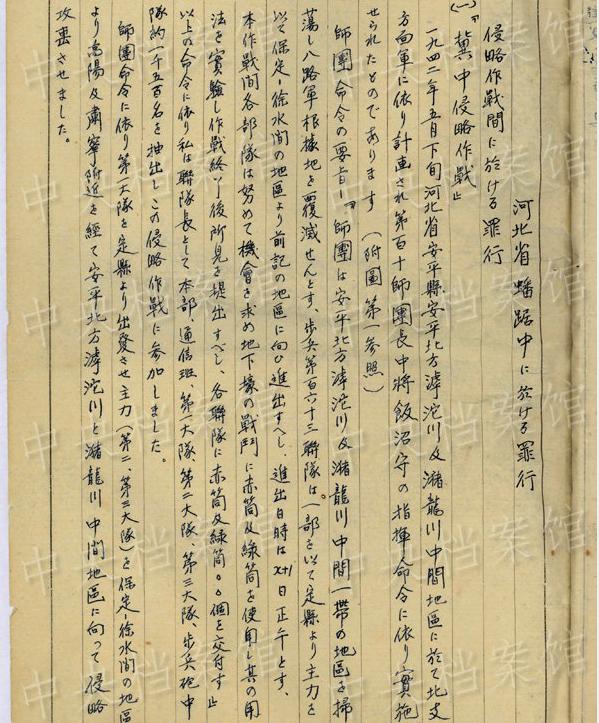 河北省蟠踞中に於ける罪行
侵略作戦間に於ける罪行
(一)『冀中侵略作戦』
一九四二年五月下旬河北省安平縣安平北方滹沱川及瀦龍川中間地區に於て北支
方面軍に依り計画され第百十師團長中將飯沼守の指揮命令に依り實施
せられたものであります（附圖第一参照）
師團命令の要旨『師團は安平北方滹沱川及瀦龍川中間一帯の地區を掃
蕩し八路軍根據地を覆滅せんとす、歩兵第百六十三聯隊は一部を以て定縣より主力を
以て保定、徐水間の地區より前記の地區に向ひ進出すべし、進出日時は x+1日正午とす、
本作戦間各部隊は努めて機會を求め地下壕の戰鬥に赤筒及緑筒を使用し其の用
法を實驗し作戦終了後所見を提出すべし、各聯隊に赤筒及緑筒〇〇個を交付す』
以上の命令に依り私は聯隊長として本部、通信班、第一大隊、第二大隊、第三大隊、歩兵砲中
隊約一千五百名を抽出しこの侵略作戦に参加しました。
師團命令に依り第一大隊を定縣より出發させ主力（第二、第三大隊）を保定、徐水間の地區
より高陽及肅寧附近を經て安平北方滹沱川と瀦龍川中間地區に向って侵略
攻撃させました。
中央档案馆